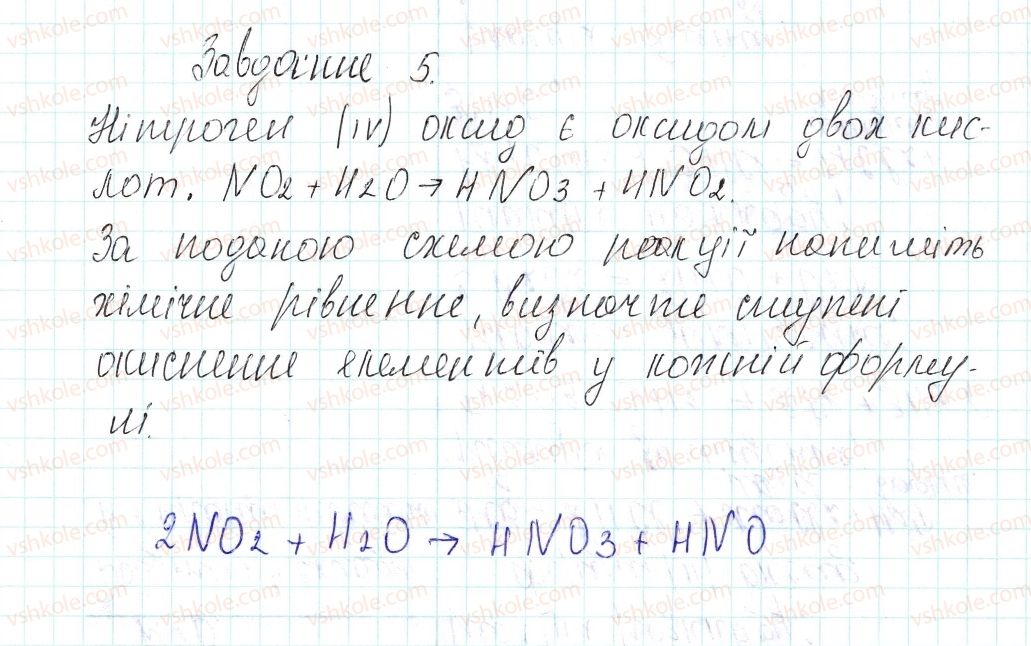 Завдання 5.
Нітроген (IV) оксид є оксидом двох кис-
лот. NO2 + H2O → HNO3 + HNO2.
За поданою схемою реакції напишіть
хімічне рівняння, визначте ступені
окиснення елементів у кожній форму-
лі.
2NO2 + H2O → HNO3 + HNO